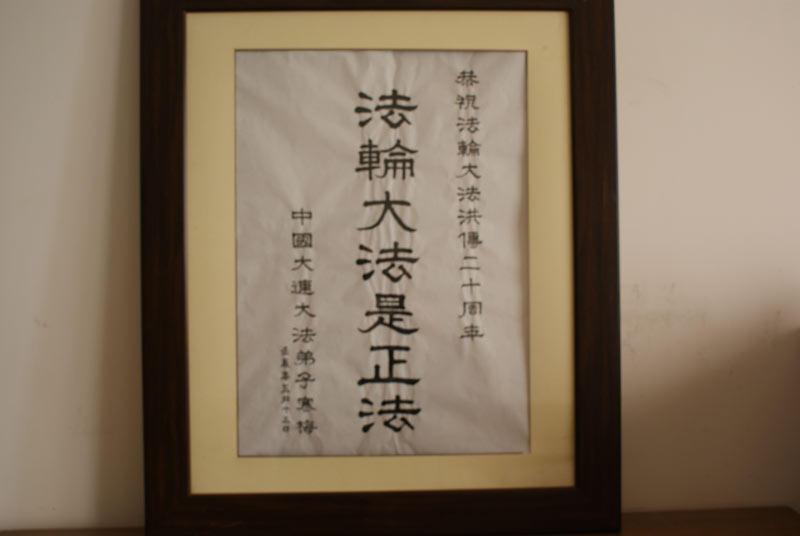 恭祝法輪大法洪傳二十周年
法輪大法是正法
中國大連大法弟子寒梅